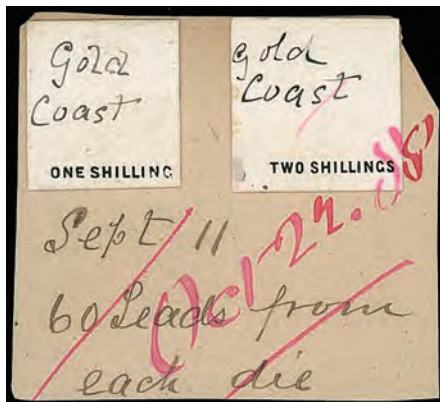 Gold
Coast
ONE SHILLING
Gold
Coast
TWO SHILLINGS
Sept 11
60 Leads from
each die